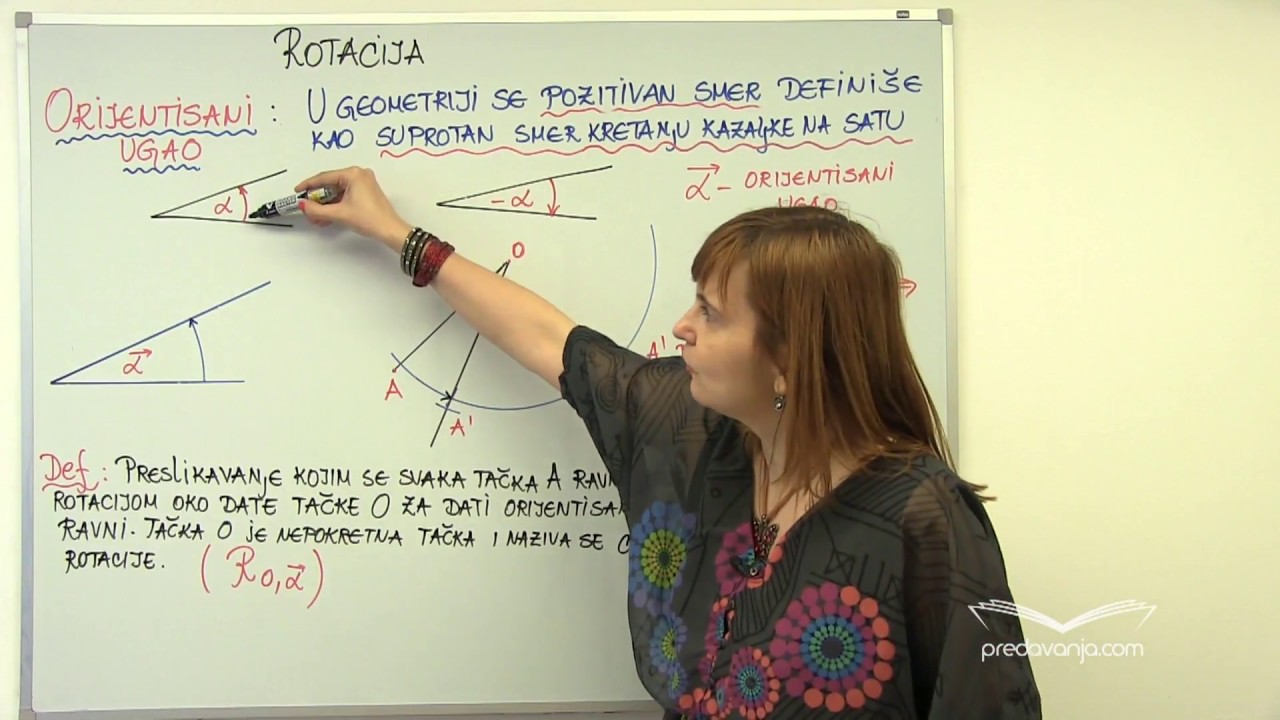 ROTACIJA
ORIJENTISANI : U GEOMETRIJI SE POZITIVAN SMER DEFINIŠE
UGAO KAO SUPROTAN SMER KRETANJU KAZALJKE NA SATU
α
-α
α⃗ - ORIJENTISANI
UGAO
O
α⃗
A
A'
A'
Def: PRESLIKAVANJE KOJIM SE SVAKA TAČKA A
ROTACIJOM OKO DATE TAČKE O ZA DATI
RAVNI. TAČKA O JE NEPOKRETNA TAČKA I NAZIVA SE
ROTACIJE.
(R O,α⃗)
predavanja.com